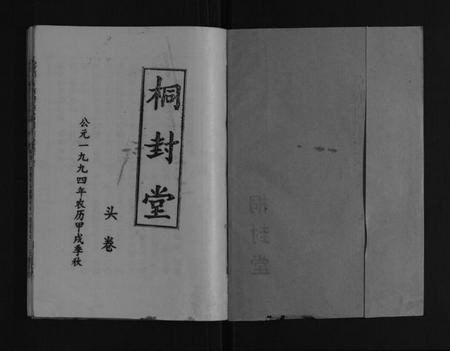 桐封堂
头卷
公元一九九四年农历甲戌季秋
桐封堂